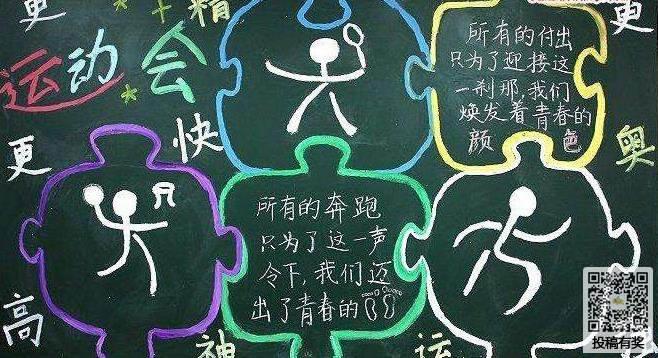 更
精
运动会
所有的付出
只为了迎接这
一刹那,我们
焕发着青春的
颜色
更
快
更
奥
所有的奔跑
只为了这一声
令下,我们迈
出了青春的
高
神
运
投稿有奖